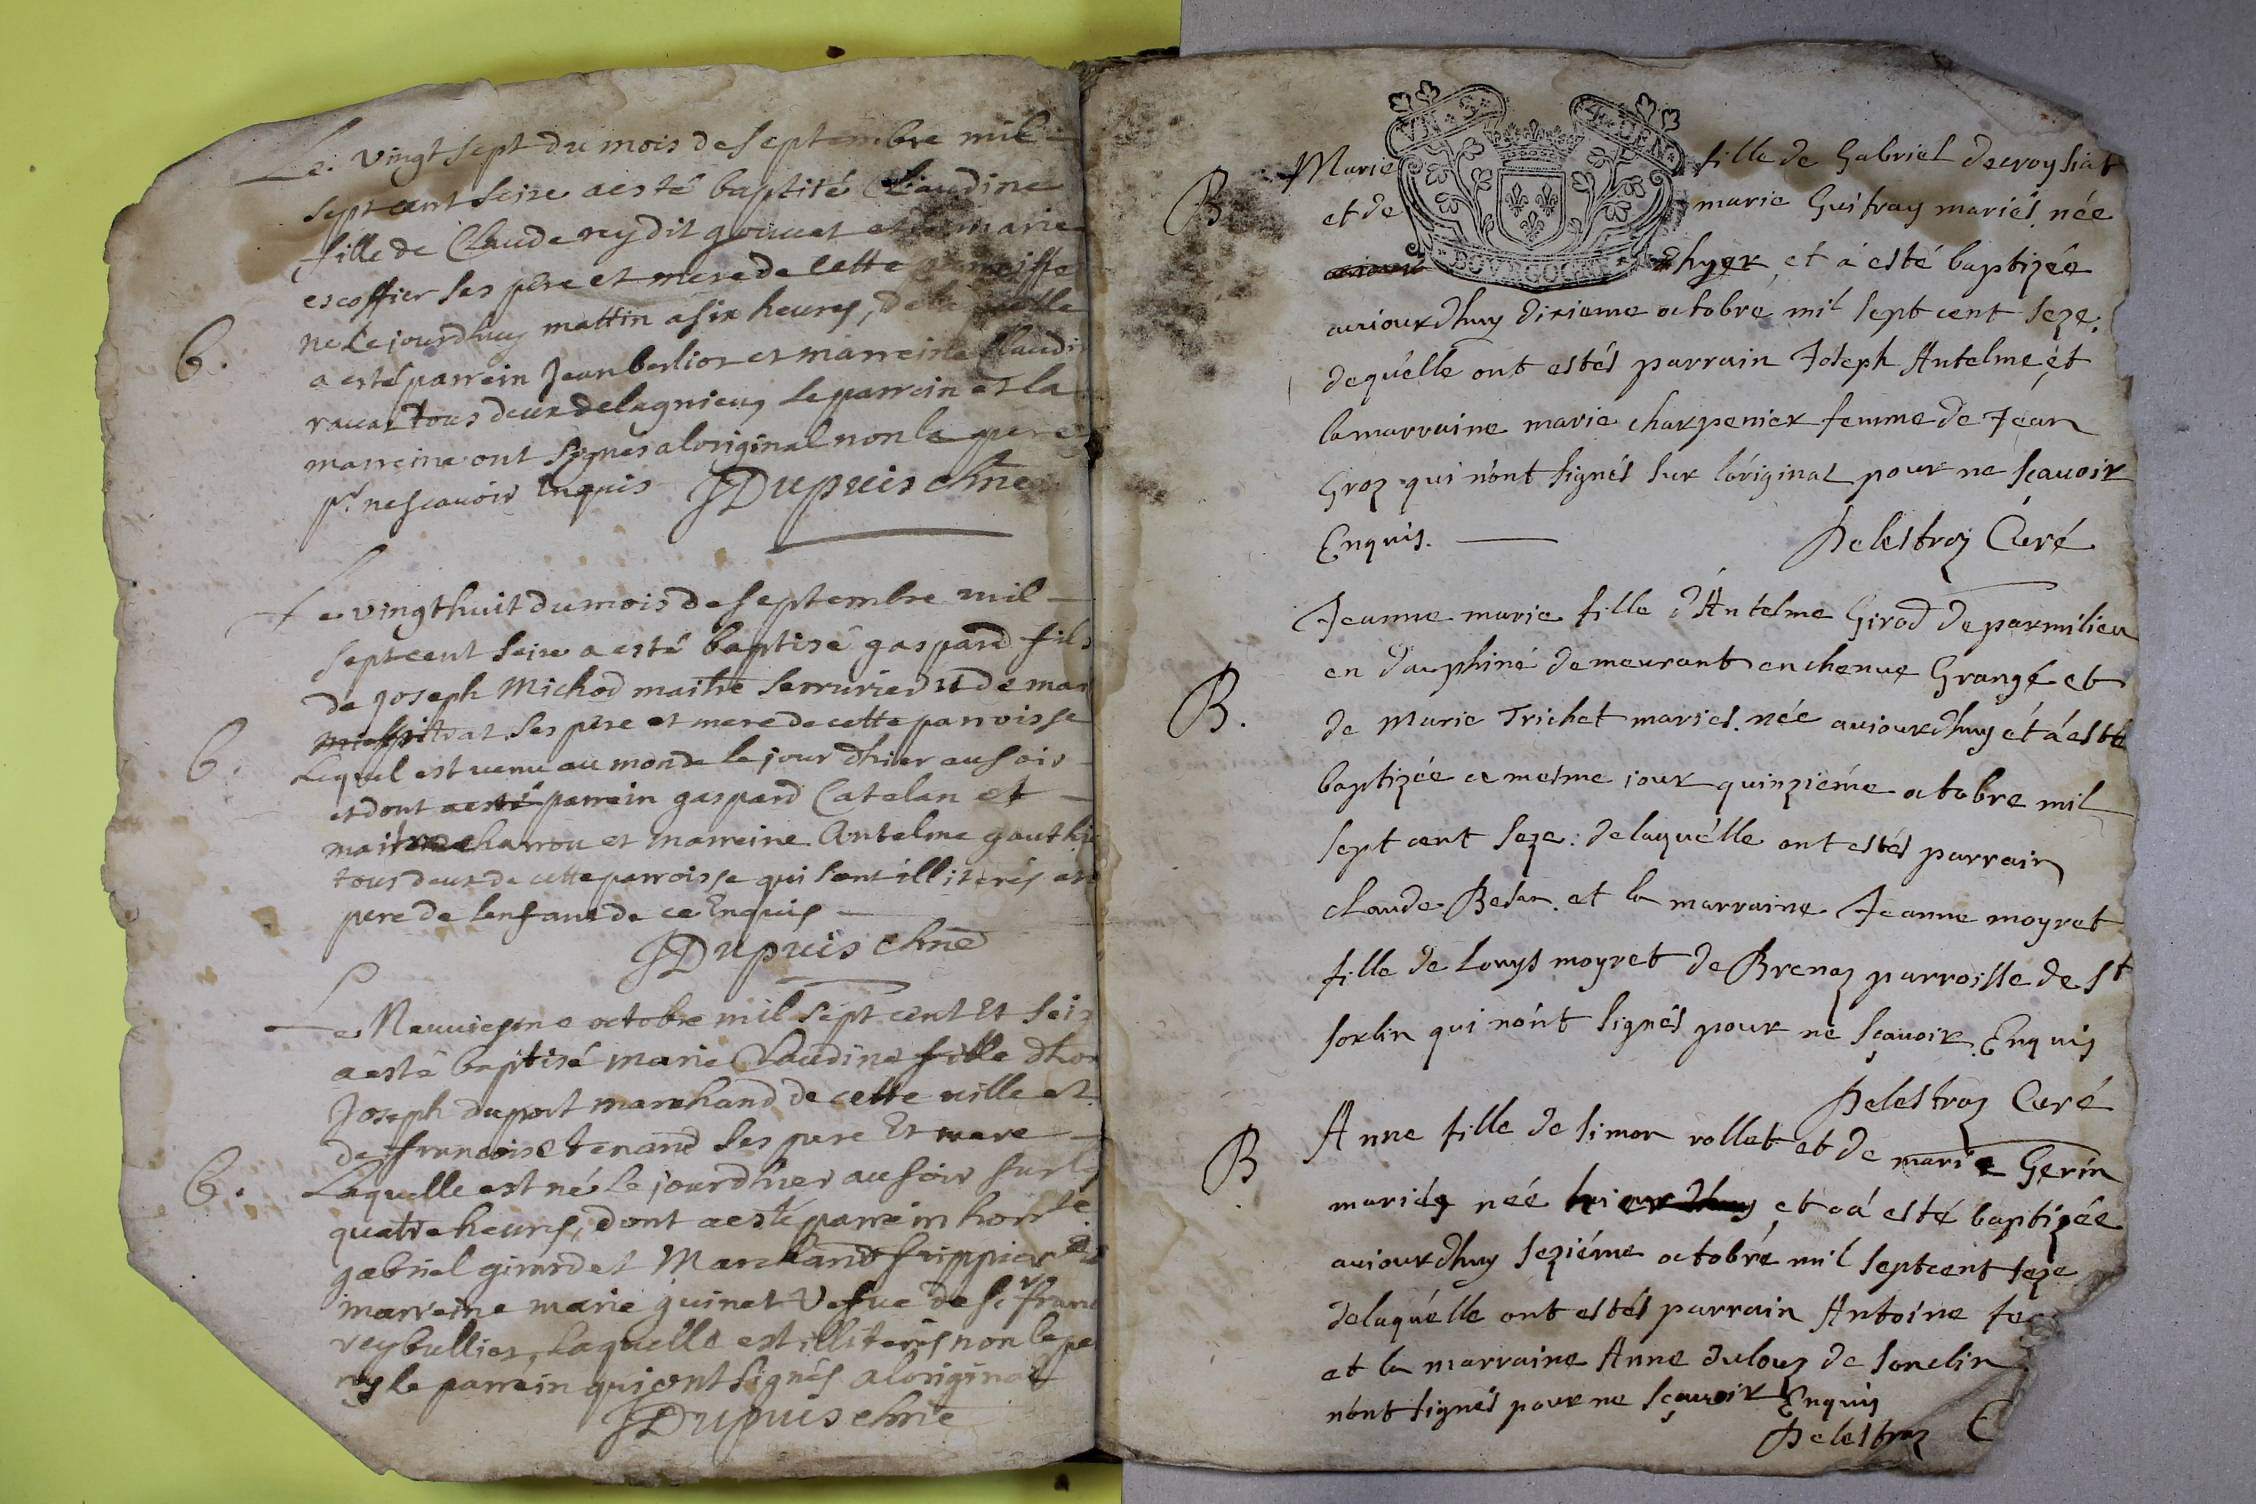 Le vingt sept du mois de septembre mil
sept cent seise a esté baptisé Claudine
fille de Claude rey dit gouvat et de marie
escoffier ses pere et mere de cette parroisse
né le jourdhuy mattin a six heures, de laquelle
a esté parrein Jean berliot et marreine Claudi
ravat tous deux de lagnieu, le parrein et la
marreine ont signés a loriginal non le pere
pr ne scavoir Enquis JDupuis chne
B.
Le vingt huit du mois de septembre mil
sept cent seise a esté baptisé gaspard fils
de Joseph Michod maitre serrurier et de mar
ses pere et mere de cette parroisse
Lequel est venu au monde le jour dhier au soir
et dont a esté parrein gaspard Catelan et
maitre charron et marreine Antelme gauthi
tous deux de cette parroisse qui sont illiterés
pere de lenfant de ce Enquis
JDupuis chne
B.
Le Neuviesme octobre mil sept cent et seis
a esté baptisé marie Claudine fille dhon
Joseph dupont marchand de cette ville et
de francoise tenand ses pere Et mere
Laquelle est né le jourdhier au soir sur les
quatre heures, dont a esté parrein honble
gabriel girardet Marchand frippier et
marreine marie guinet Vefue de sr franc
reybullier, laquelle est illiterés non le pe
ny le parrein qui ont signés a loriginal
JDupuis chne
B.
UN S. 4. DEN
BOURGOGNE
B. Marie fille de Gabriel decroysiat
et de marie Guitray mariés. née
dhyer et á esté baptizée
auiourdhuy dixieme octobre mil sept cent seze.
dequélle ont estés parrain Joseph Antelme et
la marraine marie charpenier femme de Jean
Groz qui nónt signés sur lóriginal pour ne sçauoir
Enquis. Delestraz Curé
Jeanne marie fille d'Antelme Girod de parmilieu
en dauphiné demeurant en chenue Grange et
B. de Marie Trichet mariés. née auiourdhuy ét á esté
baptizée ce mesme iour quinziéme octobre mil
sept cent seze: de laquélle ont estés parrain
claude Besan. et la marraine Jeanne moyret
fille de Louys moyret de Brenaz parroisse de st
sorlin qui nónt signés pour ne sçauoir Enquis
Delestraz Curé
B Anne fille de simon rollet et de marie Gerin
mariés née hier et a á esté baptizée
auiourdhuy seziéme octobre mil sept cent seze
de laquélle ont estés parrain Antoine
et la marraine Anne duloux de sorlin
nónt signés pour ne sçauoir Enquis
Delestraz C